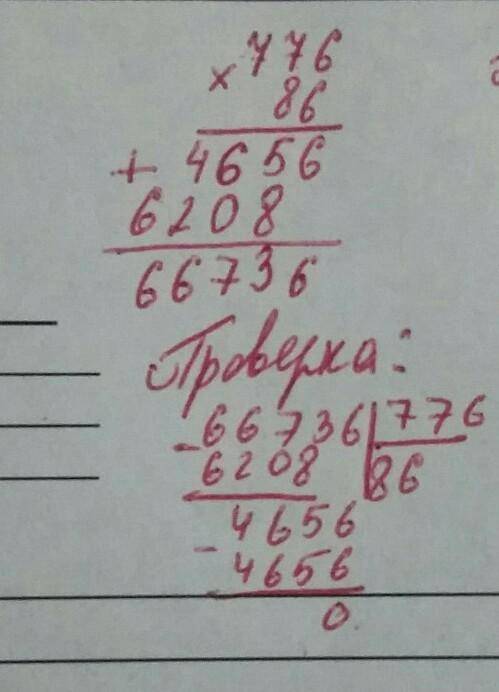 × 776
86
+ 4656
6208
66736
Проверка:
- 66736 | 776
6208 | 86
- 4656
4656
0